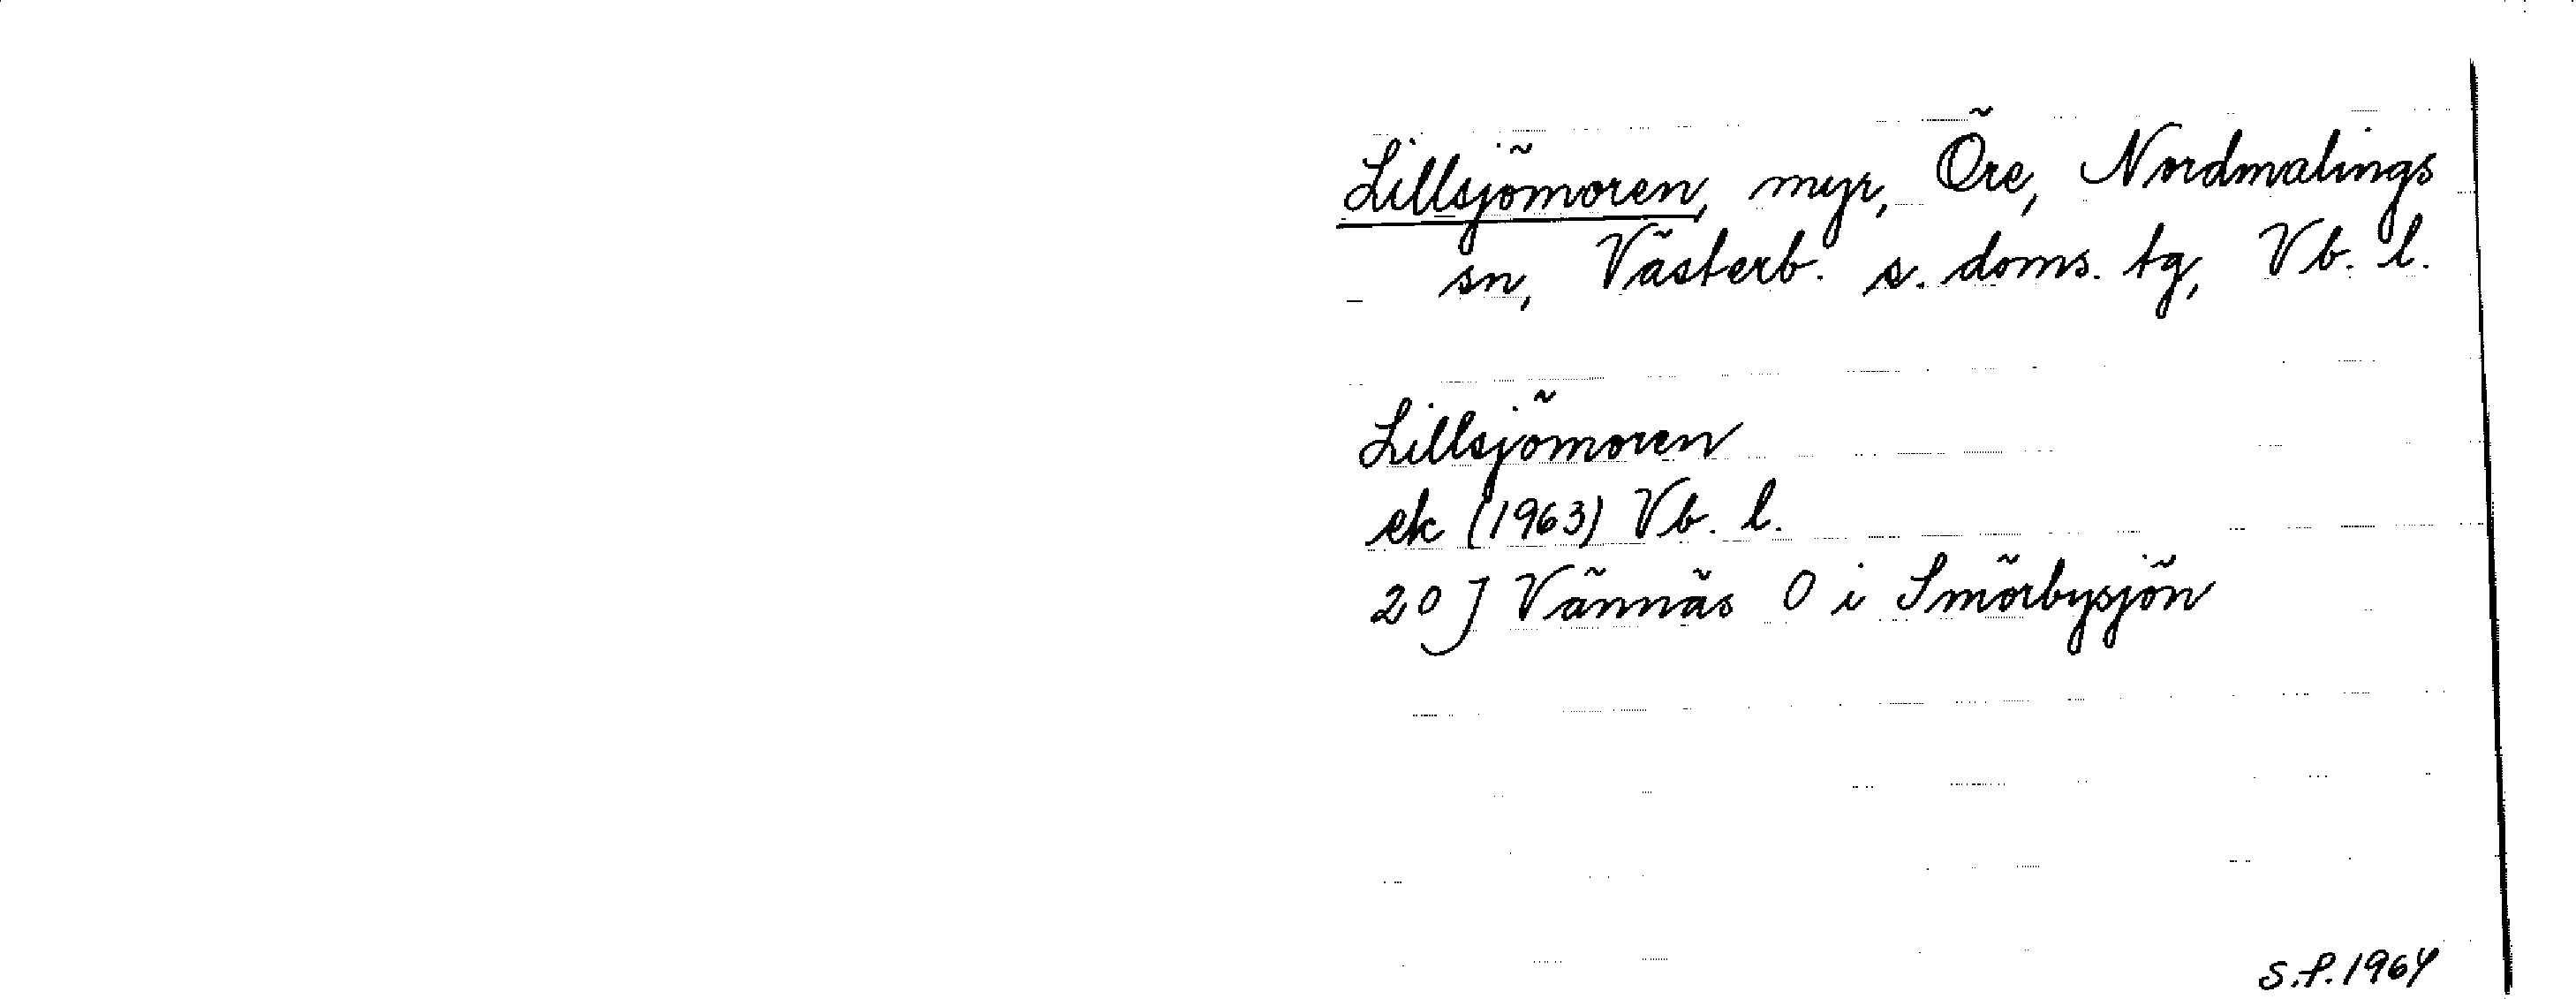 Lillsjömoren, myr, Öre, Nordmalings
sn, Västerb. s. doms. tg, Vb. l.
Lillsjömoren
ek (1963) Vb. l.
20 J Vännäs O i Smörbysjön
S.P. 1964